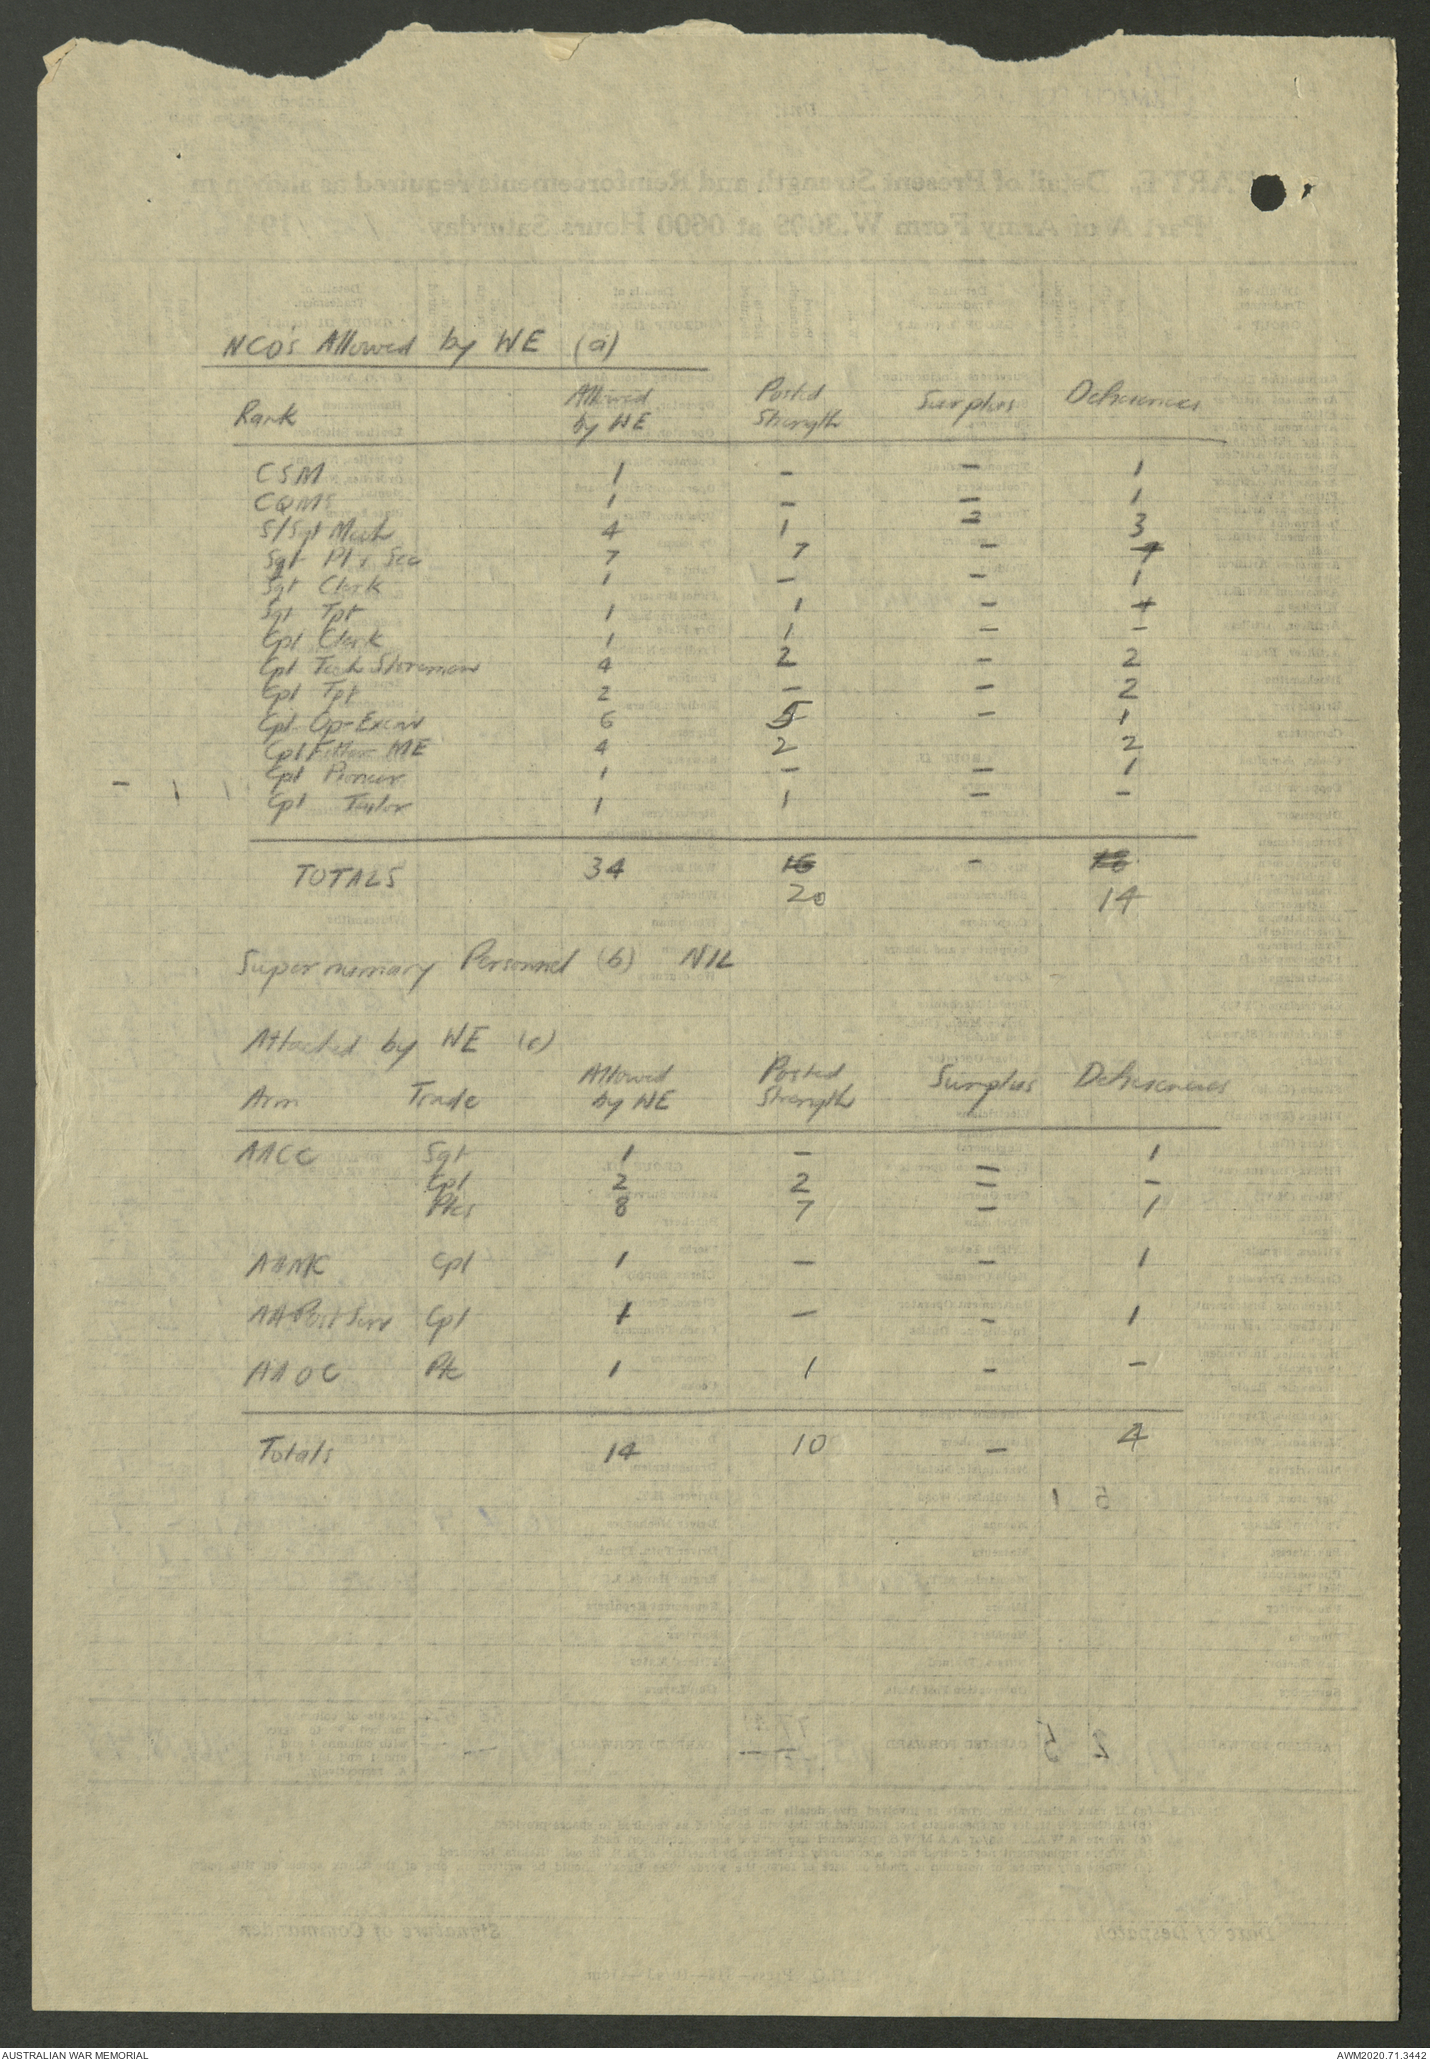 NCO's Allowed by WE (a)
Rank Allowed by WE Posted Strength Surplus Deficiencies
CSM 1 - - 1
CQMS 1 - - 1
S/Sgt Mech 4 1 - 3
Sgt Pl & Sec 7 7 -
Sgt Clerk 1 - - 1
Sgt Tpt 1 1 -
Cpl Clerk 1 1 - -
Cpl Tech Storeman 4 2 - 2
Cpl Tpt 2 - - 2
Cpl Op Excav 6 5 - 1
Cpl Fitter ME 4 2 2
Cpl Pioneer 1 - - 1
Cpl Tailor 1 1 - -
TOTALS 34 16 - 18
20 14
Supernumary Personnel (b) NIL
Attached by WE (c)
Arm Trade Allowed by WE Posted Strength Surplus Deficiencies
AACC Sgt 1 - - 1
Cpl 2 2 - -
Ptes 8 7 - 1
Cpl 1 - - 1
AA Post Serv Cpl 1 - - 1
AAOC Pte 1 1 - -
Totals 14 10 - 4
AUSTRALIAN WAR MEMORIAL AWM2020.71.3442